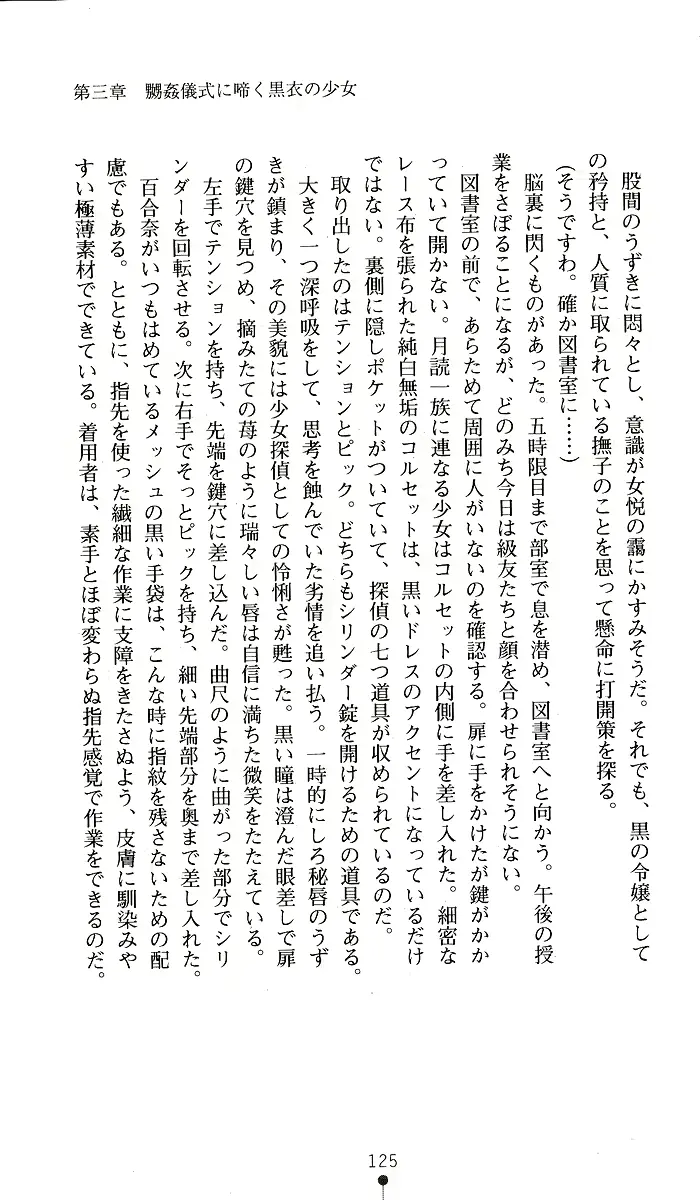 第三章　嬲姦儀式に啼く黒衣の少女
股間のうずきに悶々とし、意識が女悦の靄にかすみそうだ。それでも、黒の令嬢として
の矜持と、人質に取られている撫子のことを思って懸命に打開策を探る。
(そうですわ。確か図書室に……)
脳裏に閃くものがあった。五時限目まで部室で息を潜め、図書室へと向かう。午後の授
業をさぼることになるが、どのみち今日は級友たちと顔を合わせられそうにない。
図書室の前で、あらためて周囲に人がいないのを確認する。扉に手をかけたが鍵がかか
っていて開かない。月読一族に連なる少女はコルセットの内側に手を差し入れた。細密な
レース布を張られた純白無垢のコルセットは、黒いドレスのアクセントになっているだけ
ではない。裏側に隠しポケットがついていて、探偵の七つ道具が収められているのだ。
取り出したのはテンションとピック。どちらもシリンダー錠を開けるための道具である。
大きく一つ深呼吸をして、思考を蝕んでいた劣情を追い払う。一時的にしろ秘唇のうず
きが鎮まり、その美貌には少女探偵としての怜悧さが甦った。黒い瞳は澄んだ眼差しで扉
の鍵穴を見つめ、摘みたての苺のように瑞々しい唇は自信に満ちた微笑をたたえている。
左手でテンションを持ち、先端を鍵穴に差し込んだ。曲尺のように曲がった部分でシリ
ンダーを回転させる。次に右手でそっとピックを持ち、細い先端部分を奥まで差し入れた。
百合奈がいつもはめているメッシュの黒い手袋は、こんな時に指紋を残さないための配
慮でもある。とともに、指先を使った繊細な作業に支障をきたさぬよう、皮膚に馴染みや
すい極薄素材でできている。着用者は、素手とほぼ変わらぬ指先感覚で作業をできるのだ。
125